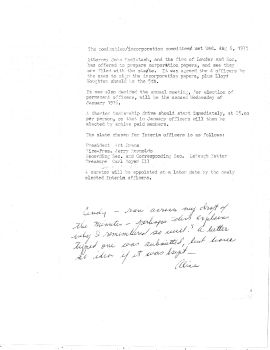 The nominating/incorporation committee met Wed. Aug 6, 1975
Attorney John and the firm of and Lee,
has offered to prepare corporation papers, and see they
are filed with the state. It was agreed the 4 officers be
the ones to sign the incorporation papers, plus Lloyd
Houghton as the 5th.
It was also decided the annual meeting, for election of
permanent officers, will be the second Wednesday of
January 1976.
A Charter membership drive should start immediately, at $5.00
per person, so that in January officers will then be
elected by active paid members.
The slate chosen for Interim officers is as follows:
President
Vice-Pres. Jerry Reynolds
Recording Sec. and Corresponding Sec.
Treasurer Carl III
A will be appointed at a later date by the newly
elected Interim officers.
Cindy – ran across my draft of
the minutes – perhaps this explains
why I remembered so well! A better
typed one was submitted, but have
no idea if it was kept –
Alice